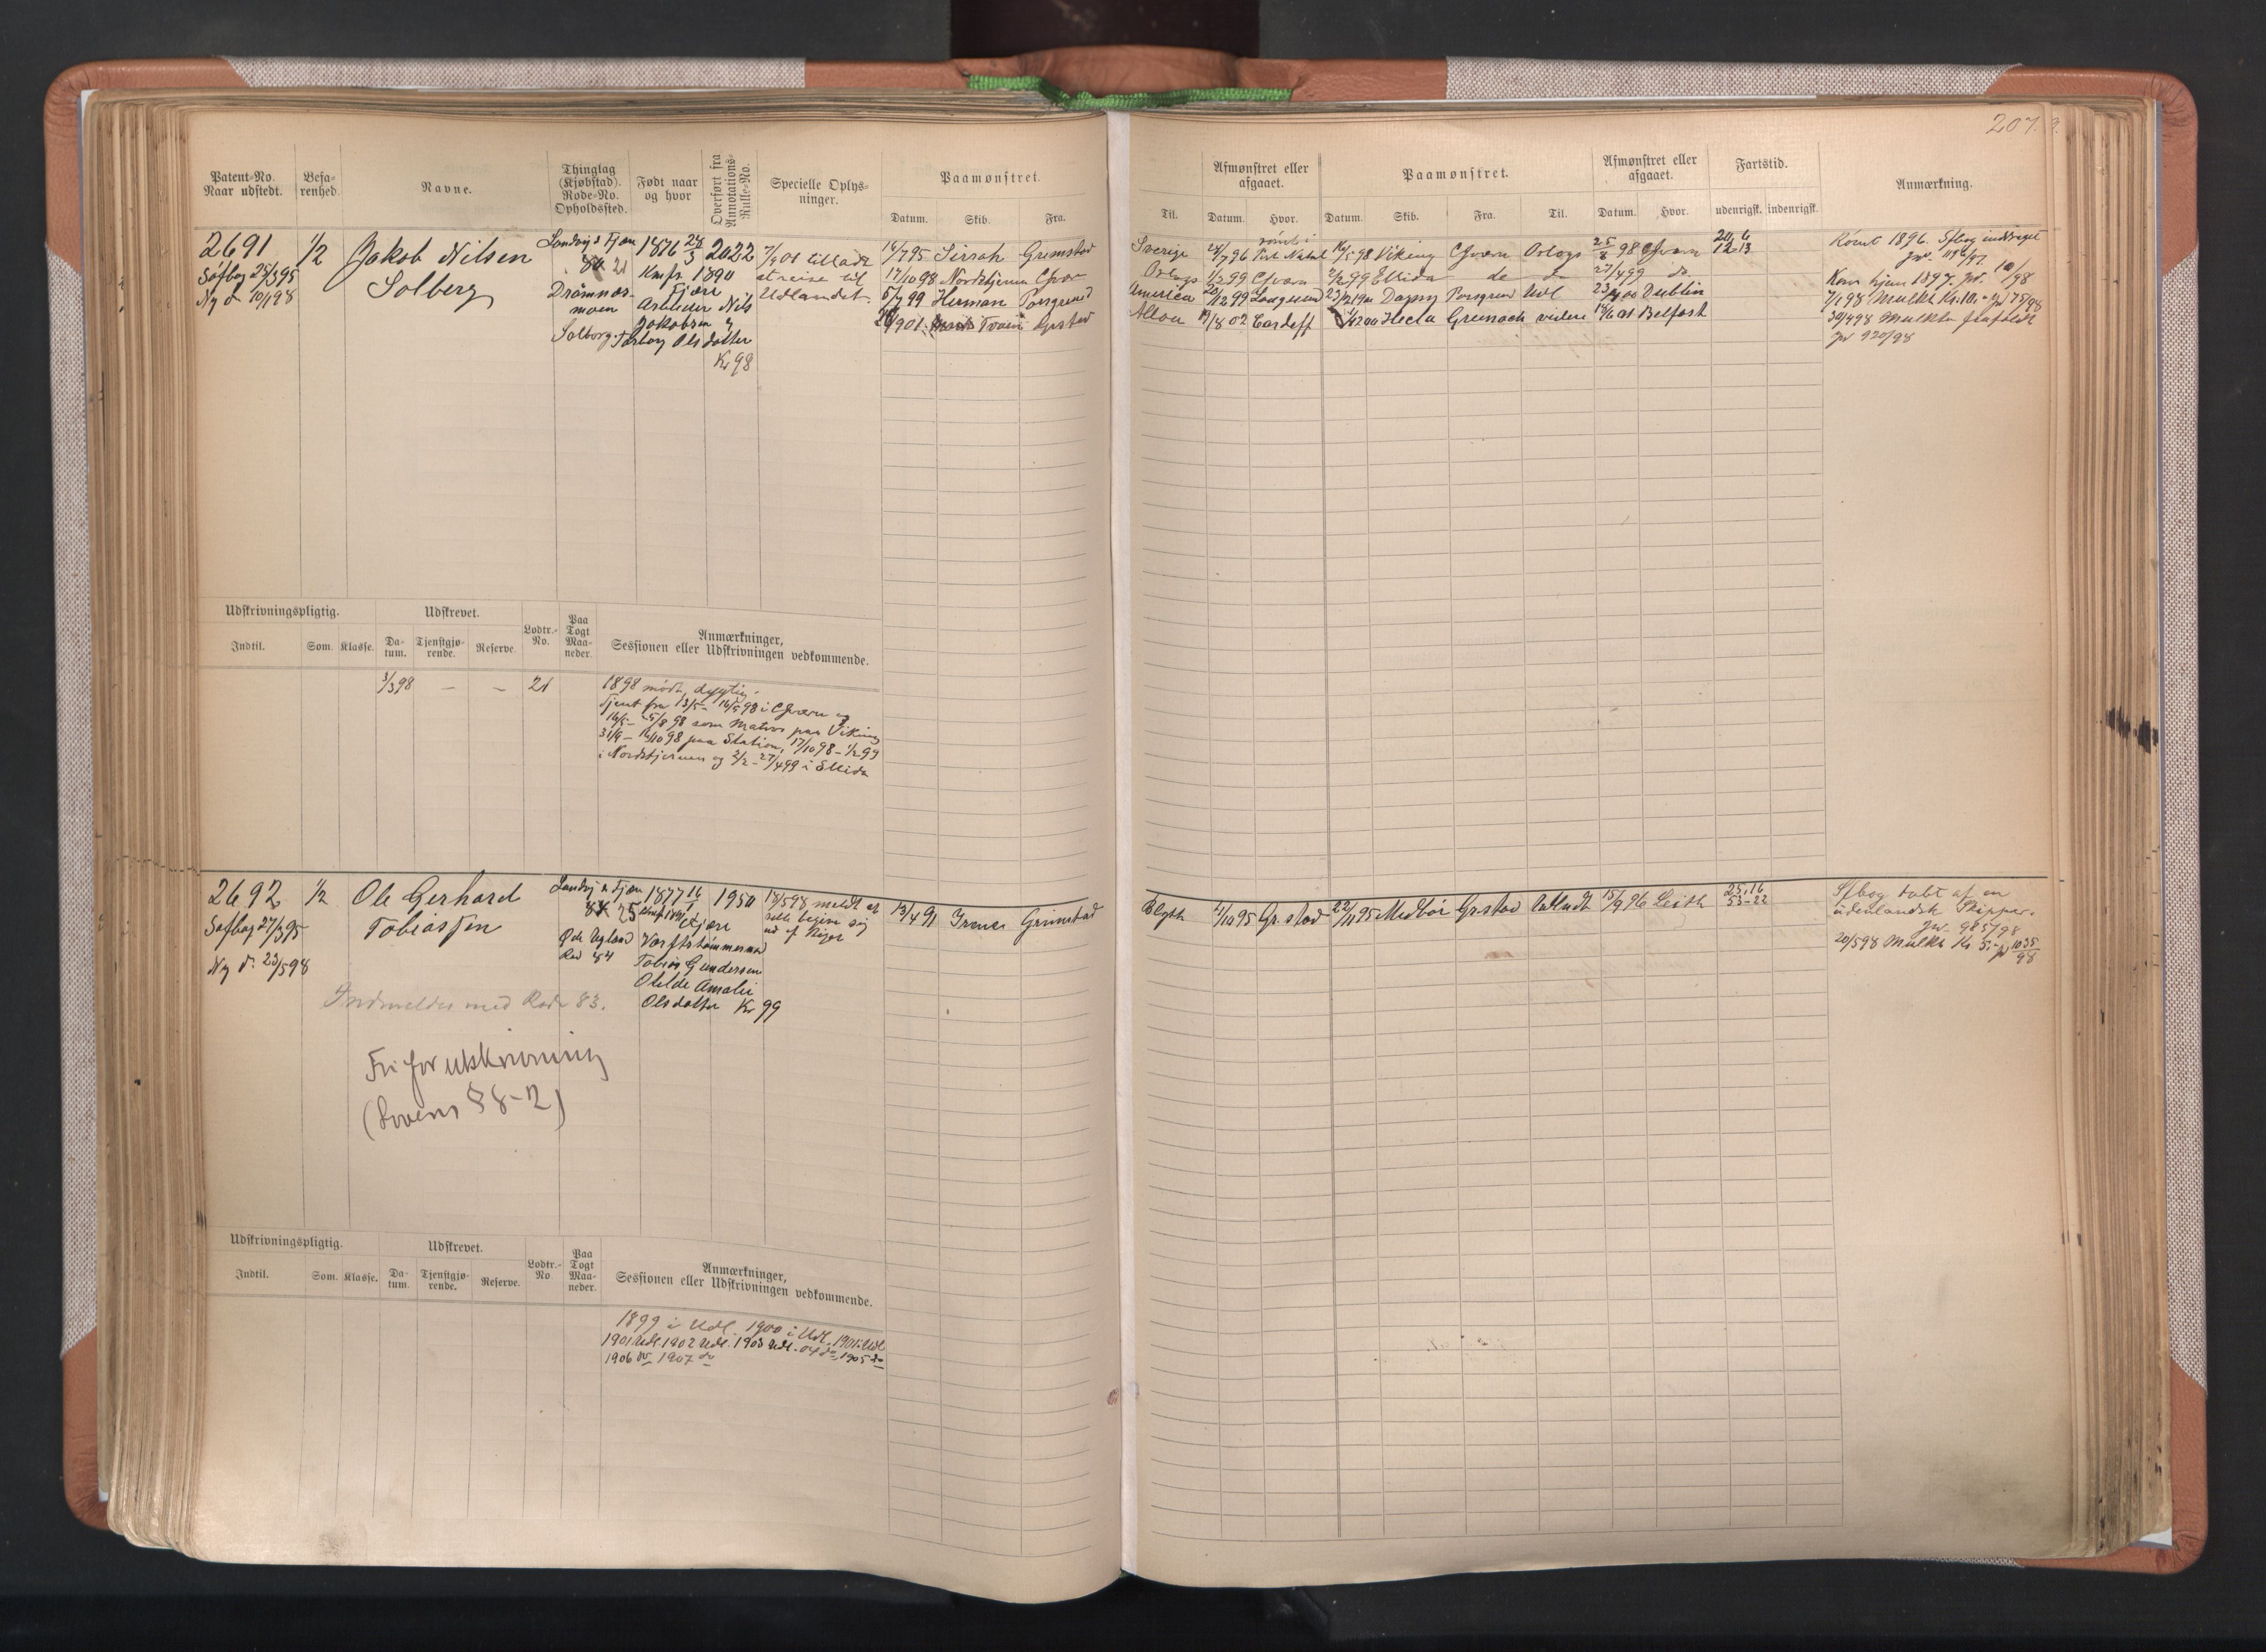 207.
Patent-No. Naar udstedt.
Befarenhed.
Navne.
Thinglag (Kjøbstad). Rode-No. Opholdssted.
Født naar og hvor
Overført fra Annotations-Rulle-No.
Specielle Oplysninger.
Paamønstret.
Datum. Skib. Fra.
Til.
Afmønstret eller afgaaet.
Datum. Hvor.
Paamønstret.
Datum. Skib. Fra. Til.
Afmønstret eller afgaaet.
Datum. Hvor.
Fartstid.
udenrigsk. indenrigsk.
Anmærkning.
2691
Søfbog 25/3 95
Ny d. 10/1 98
1/2
Jakob Nilsen
Solberg
Landvig & Fjære
21
Drømnes-
moen
Solberg
1876 24/3
Knfr. 1890
Fjære
Arbeider Nils
Jakobsen &
Torborg Olsdatter
Kr 98
2022
7/9 01 tilladt
at reise til
Udlandet.
16/7 95 Sirrah Gremstad
17/10 98 Nordstjernen
5/7 99 Herman Porsgrund
Grstad
Sverige 28/7 96 rømt i Port Natal 16/5 98 Viking Orlogs 25/8 98
Orlogs 1/2 99 2/2 99 Ellida do 27/4 99 do.
America 20/12 99 Dagny Porsgrund Udl Dublin
Alloa 19/8 02 Cardeff Hecla Greenock videre Belfast
20 6
12 13
Rømt 1896. Sfbog inddraget
Kom hjem 1897. Jr. 10/98
7/1 98 Mulkt Kr. 10.- Jr 75/98
30/4 98 Mulkten frafaldt
Jr 920/98
Udskrivningspligtig.
Indtil. Som. Klasse.
Udskrevet.
Datum. Tjenstgjørende. Reserve.
Lodtr.-No.
Paa Togt Maaneder.
Anmærkninger,
Sessionen eller Udskrivningen vedkommende.
3/3 98 – – 21
1898 mødt, dygtig.
Tjent fra 13/5 – 16/5 98 i
16/5 – 25/8 98 som Matros paa Viking
31/9 – 16/10 98 paa Station, 17/10 98 – 1/2 99
i Nordstjernen og 2/2 – 27/4 99 i Ellida
2692
Søfbog 27/3 95
Ny d. 23/5 98
1/2
Ole Gerhard
Tobiassen
Landvig & Fjære
25
Øde Ugland
Rod 84
1877 16/1
Fjære
Værftstømmermand
Tobias Gundersen
Olelde Amalie
Olsdatter Kr 99
1950
18/5 98 meldt at
ville begive sig
ud af Riget
13/4 91 Irene Grimstad
Blyth 4/10 95 Gr.stad 22/11 95 Medbør Grstad Udlandt 15/9 96 Leith
25.16
53–22
Sfbog tabt af en
udenlandsk Skipper.
Jr. 985/98
20/5 98 Mulkt Kr 5.- Jr 1035/98
Indmeldes med Rode 83.
Fri for utskrivning
(Lovens § 8-2)
Udskrivningspligtig.
Indtil. Som. Klasse.
Udskrevet.
Datum. Tjenstgjørende. Reserve.
Lodtr.-No
Paa Togt Maaneder.
Anmærkninger,
Sessionen eller Udskrivningen vedkommende.
1899 i Udl. 1900 i Udl. 1901 Udl
1901 Udl. 1902 Udl. 1903 Udl. 04 do 1905 do
1906 do 1907 do